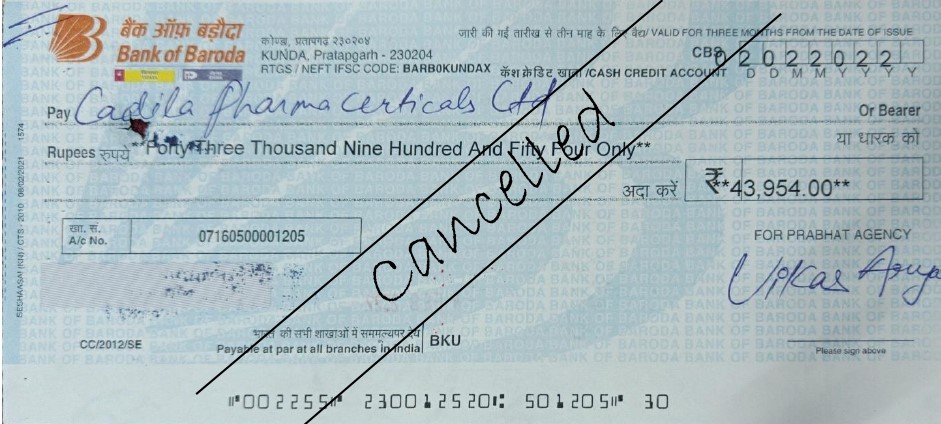 बैंक ऑफ़ बड़ौदा
Bank of Baroda
कोण्डा, प्रतापगढ़ २३०२०४
KUNDA, Pratapgarh - 230204
RTGS / NEFT IFSC CODE: BARB0KUNDAX
जारी की गई तारीख से तीन माह के लिए वैध/ VALID FOR THREE MONTHS FROM THE DATE OF ISSUE
CBS
कॅश क्रेडिट खाता /CASH CREDIT ACCOUNT
02022022
D D M M Y Y Y Y
Pay Cadila Pharmacerticals Ltd Or Bearer
Rupees रुपये **Forty Three Thousand Nine Hundred And Fifty Four Only** या धारक को
अदा करें ₹ **43,954.00**
खा. सं.
A/c No. 07160500001205
FOR PRABHAT AGENCY
Cancelled
Vikas
भारत की सभी शाखाओं में सममूल्यपर देय
CC/2012/SE Payable at par at all branches in India BKU
Please sign above
SESHAASAI (KN) / CTS - 2010 08/02/2021 1574
⑈002255⑈ 230012520⑆ 501205⑈ 30